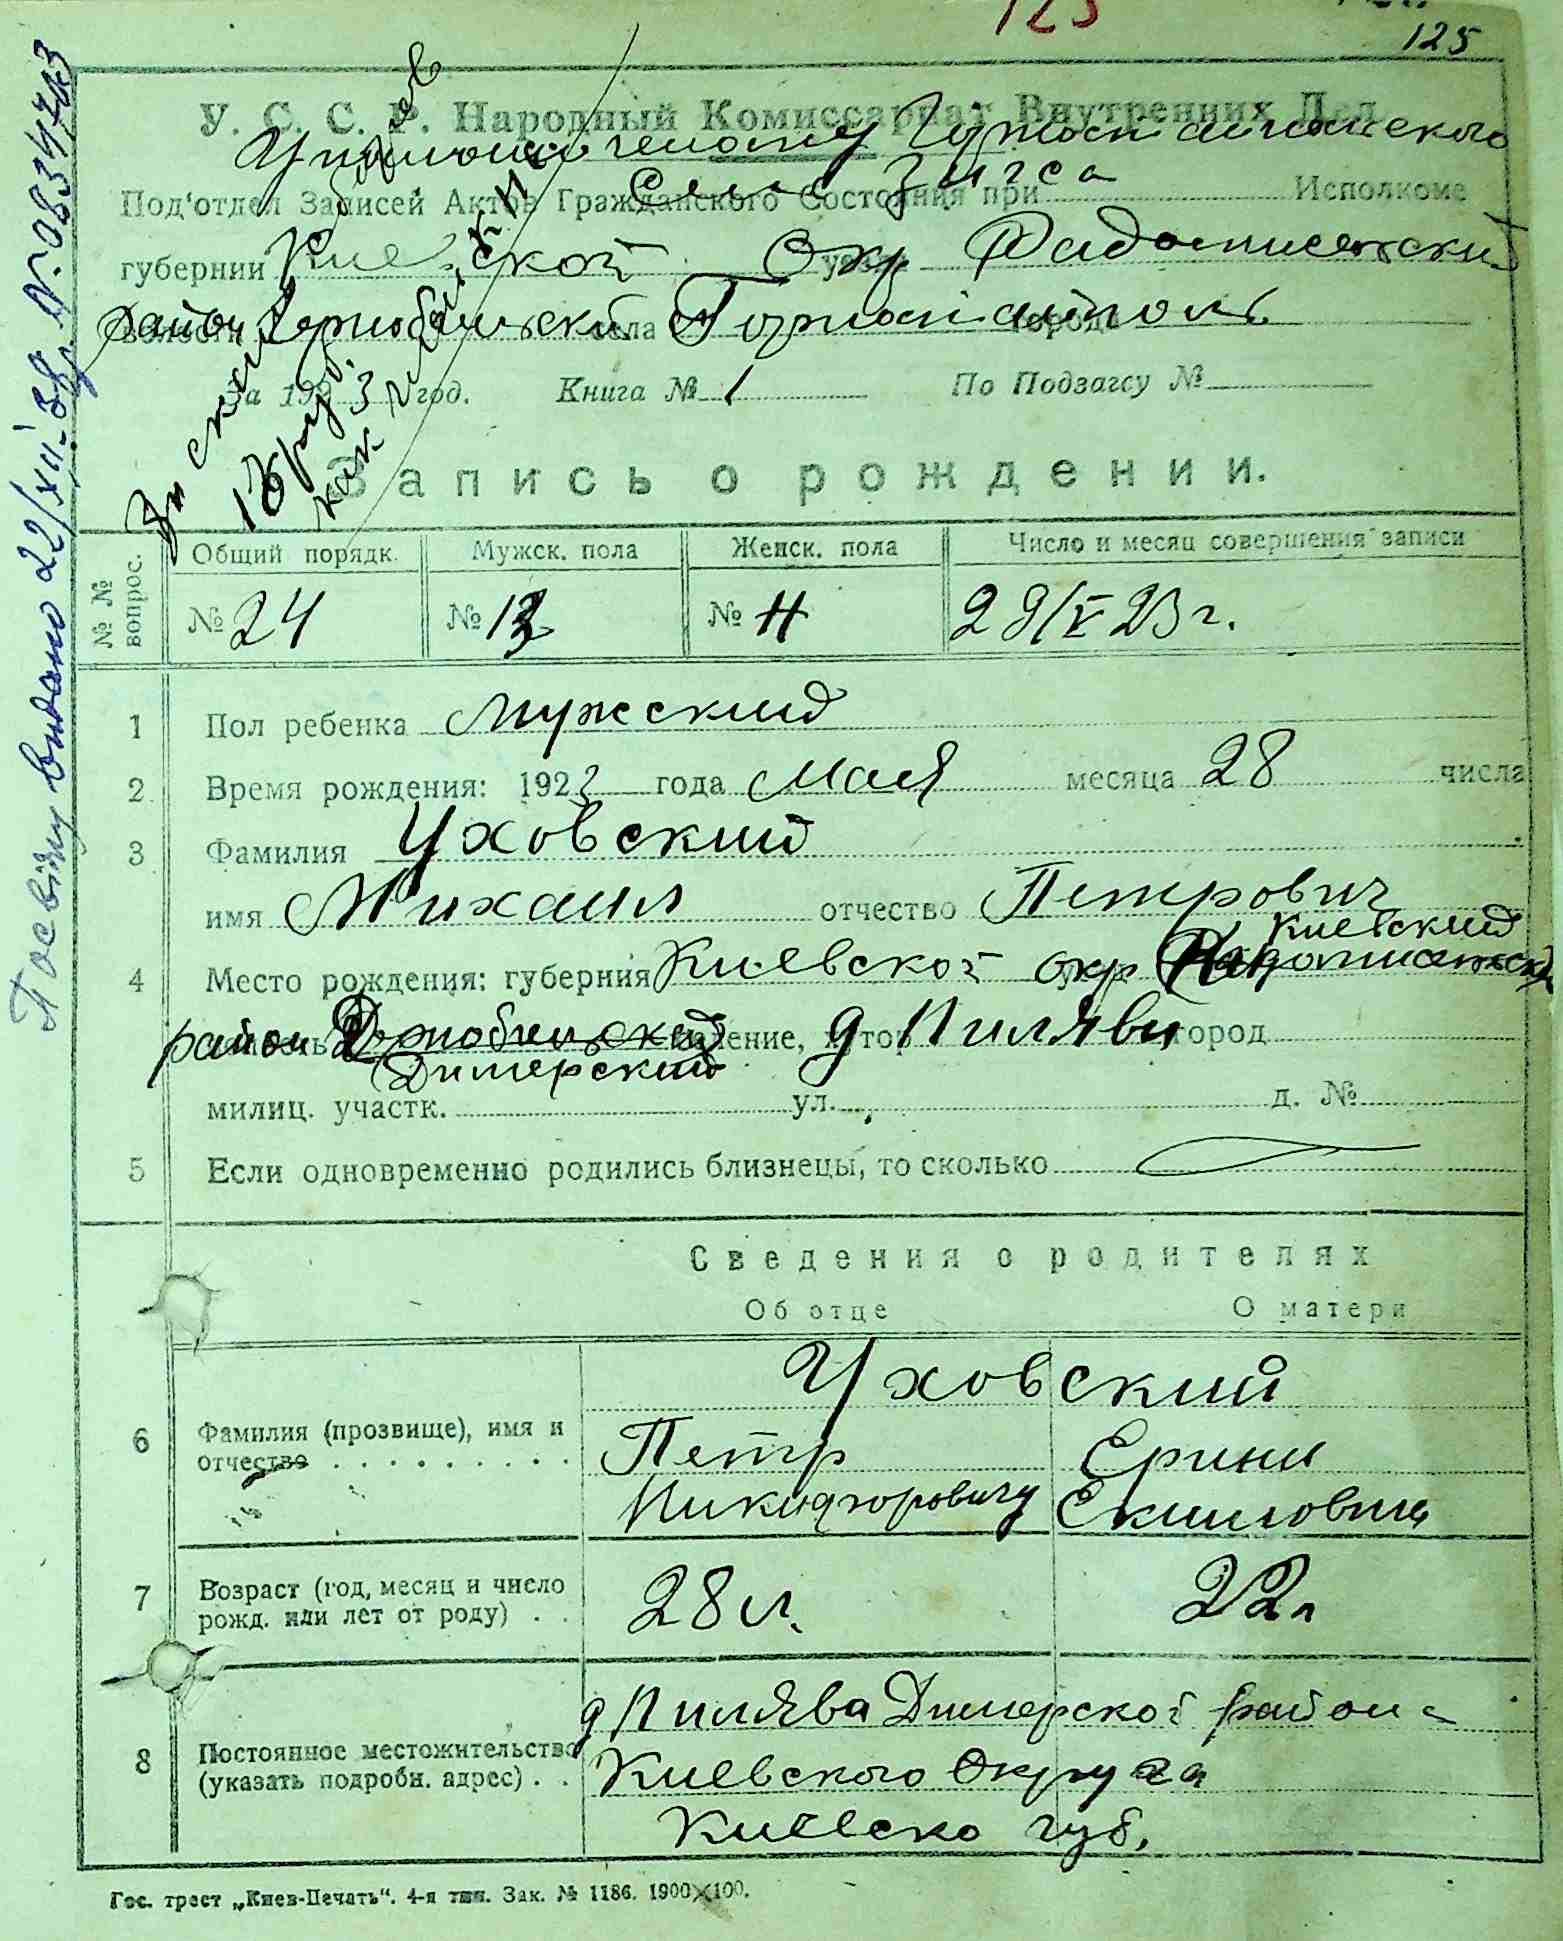 125
125
У. С. С. Р. Народный Комиссариат Внутренних Дел
Горностайпольского
Под'отдел Записей Актов Гражданского Состояния при Сель Загса Исполкоме
губернии Киевской Окр уезда Радомисельский
район волости Чернобыльской села Горностайполь города
За 1923 год. Книга № 1 По Подзагсу №
Запись о рождении.
№ № вопрос.
Общий порядк. Мужск. пола Женск. пола Число и месяц совершения записи
№ 24 № 13 № 11 29/V 23 г.
1 Пол ребенка Мужский
2 Время рождения: 1923 года Мая месяца 28 числа
3 Фамилия Уховский
имя Михаил отчество Петрович
Киевский
4 Место рождения: губерния Киевской окр Радомисельский
район Чернобыльский селение, хутор д Пилява город
Димерский
милиц. участк. ул. д. №
5 Если одновременно родились близнецы, то сколько
Сведения о родителях
Об отце О матери
Уховский
6 Фамилия (прозвище), имя и Петр Ерина
отчество Никифорович Екимовна
7 Возраст (год, месяц и число
рожд. или лет от роду) 28 л. 22 л
д Пилява Димерской района
8 Постоянное местожительство Киевского Округа
(указать подробн. адрес) Киевско губ.
Гос. трест „Киев-Печать“. 4-я тип. Зак. № 1186. 1900×100.
Посвідку видано 22/XII-38 р. №